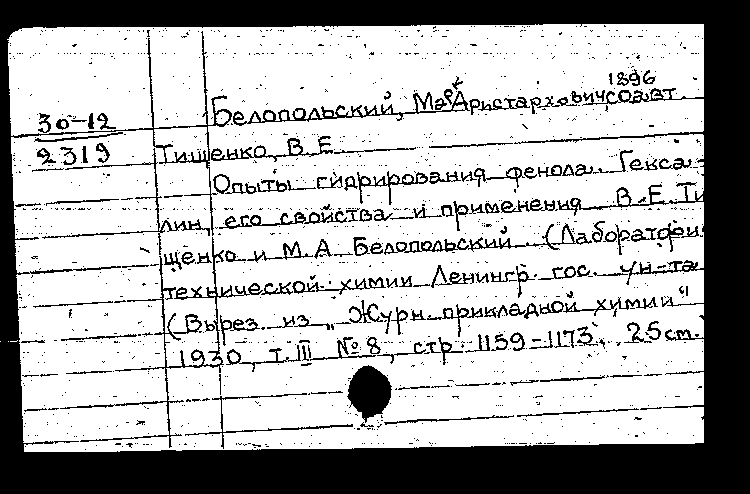 1896
Белопольский, Марк Аристархович соавт.
30-12
2319
Тищенко, В.Е.
Опыты гидрирования фенола. Гекса-
лин, его свойства и применения В.Е. Ти
щенко и М.А. Белопольский. (Лаборатории
технической химии Ленингр. гос. ун-та
(Вырез. из „Журн. прикладной химии"
1930, т. III № 8, стр. 1159-1173, 25см.